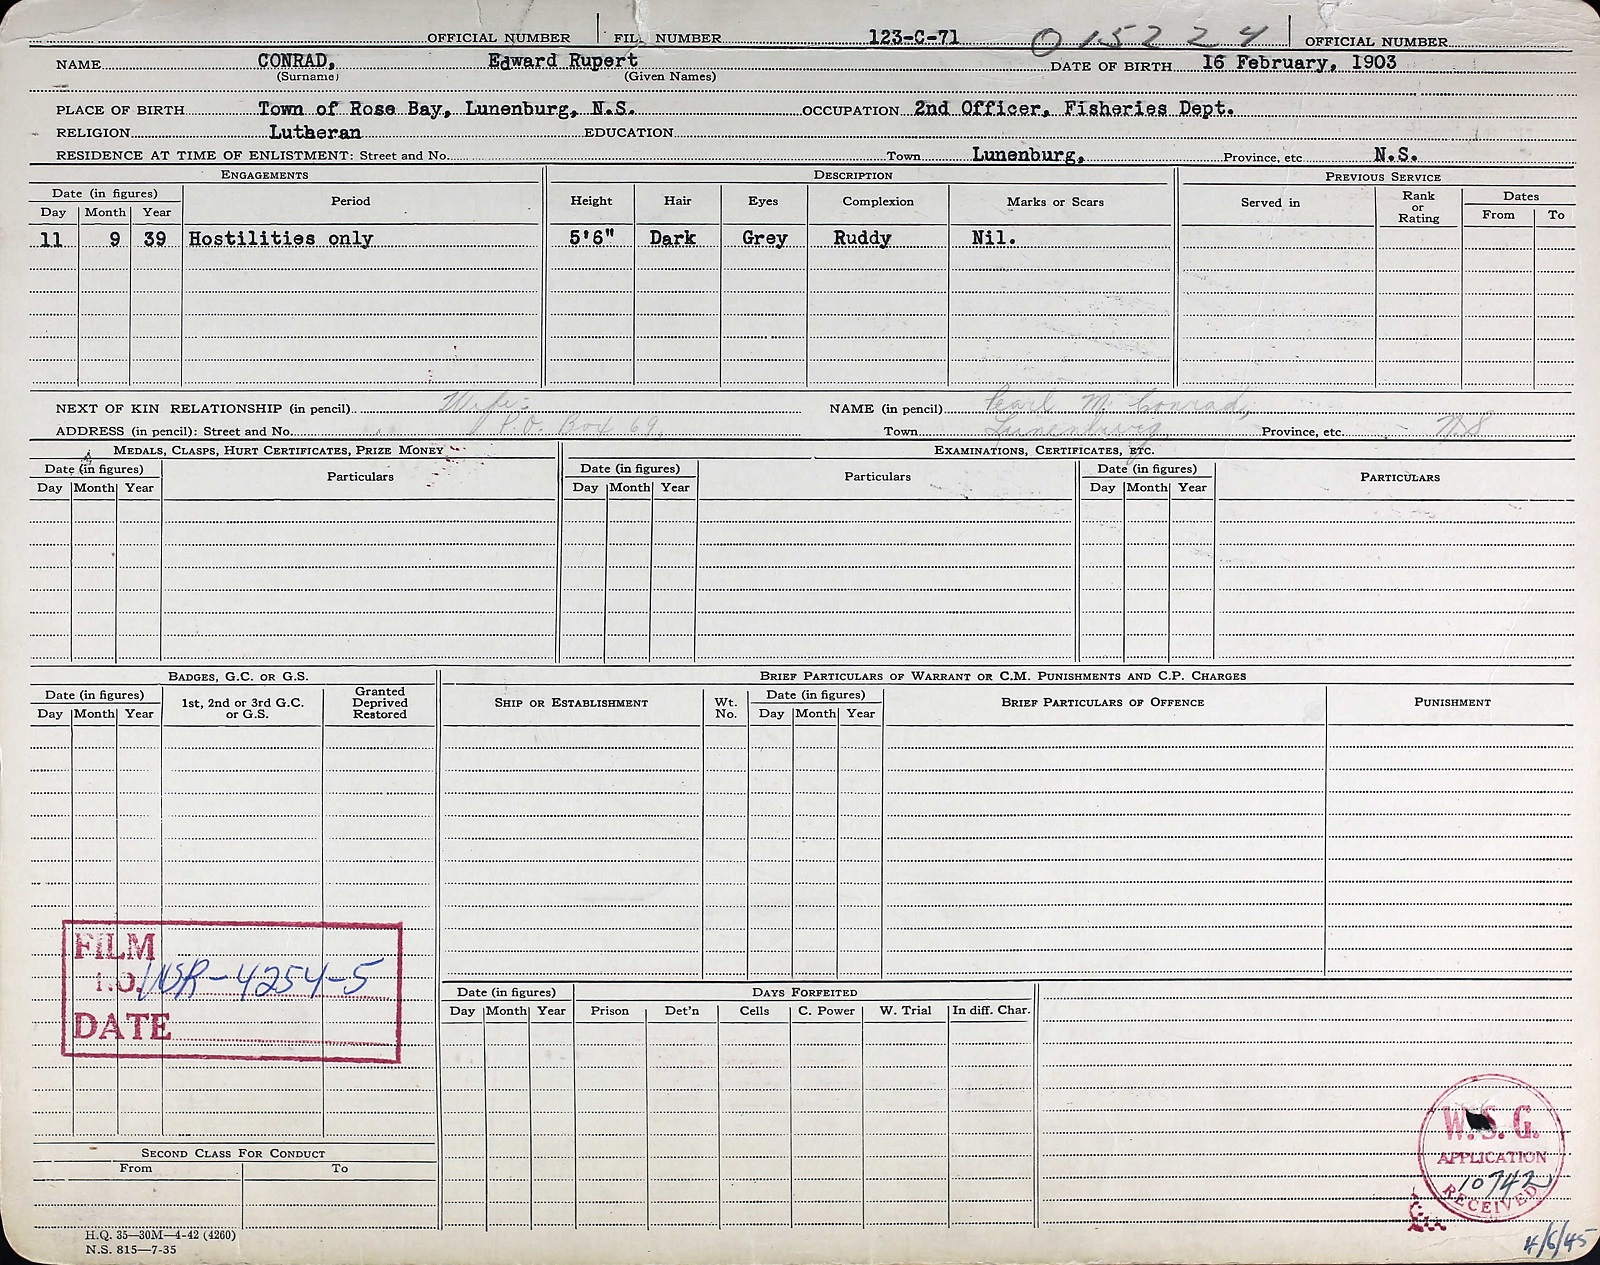 OFFICIAL NUMBER FILE NUMBER 123-C-71 O 15224 OFFICIAL NUMBER
NAME CONRAD, Edward Rupert DATE OF BIRTH 16 February, 1903
(Surname) (Given Names)
PLACE OF BIRTH Town of Rose Bay, Lunenburg, N.S. OCCUPATION 2nd Officer, Fisheries Dept.
RELIGION Lutheran EDUCATION
RESIDENCE AT TIME OF ENLISTMENT: Street and No. Town Lunenburg, Province, etc. N.S.
ENGAGEMENTS DESCRIPTION PREVIOUS SERVICE
Date (in figures) Period Height Hair Eyes Complexion Marks or Scars Served in Rank or Rating Dates
Day Month Year From To
11 9 39 Hostilities only 5'6" Dark Grey Ruddy Nil.
NEXT OF KIN RELATIONSHIP (in pencil) Wife: NAME (in pencil) Pearl M. Conrad,
ADDRESS (in pencil): Street and No. P.O. Box 69, Town Lunenburg, Province, etc. N.S
MEDALS, CLASPS, HURT CERTIFICATES, PRIZE MONEY EXAMINATIONS, CERTIFICATES, ETC.
Date (in figures) Particulars Date (in figures) Particulars Date (in figures) PARTICULARS
Day Month Year Day Month Year Day Month Year
BADGES, G.C. OR G.S. BRIEF PARTICULARS OF WARRANT OR C.M. PUNISHMENTS AND C.P. CHARGES
Date (in figures) 1st, 2nd or 3rd G.C. or G.S. Granted Deprived Restored SHIP OR ESTABLISHMENT Wt. No. Date (in figures) BRIEF PARTICULARS OF OFFENCE PUNISHMENT
Day Month Year Day Month Year
FILM
NO. NSR-4254-5
DATE
Date (in figures) DAYS FORFEITED
Day Month Year Prison Det'n Cells C. Power W. Trial In diff. Char.
W.S.G.
APPLICATION
10742
RECEIVED
SECOND CLASS FOR CONDUCT
From To
H.Q. 35—30M—4-42 (4260)
N.S. 815—7-35
4/6/45